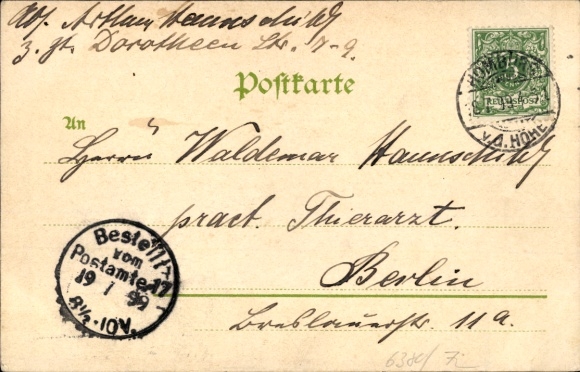 Abs. Arthur Hannschildt
z. Zt. Dorotheen Str. 7-9.
Postkarte
HOMBURG
REICHSPOST
v.d. HÖHE
An
Herrn Waldemar Hannschildt
pract. Thierarzt.
Berlin
Breslauerstr. 11a.
Bestellt
vom
Postamte 17
19 1 99
8½-10V.